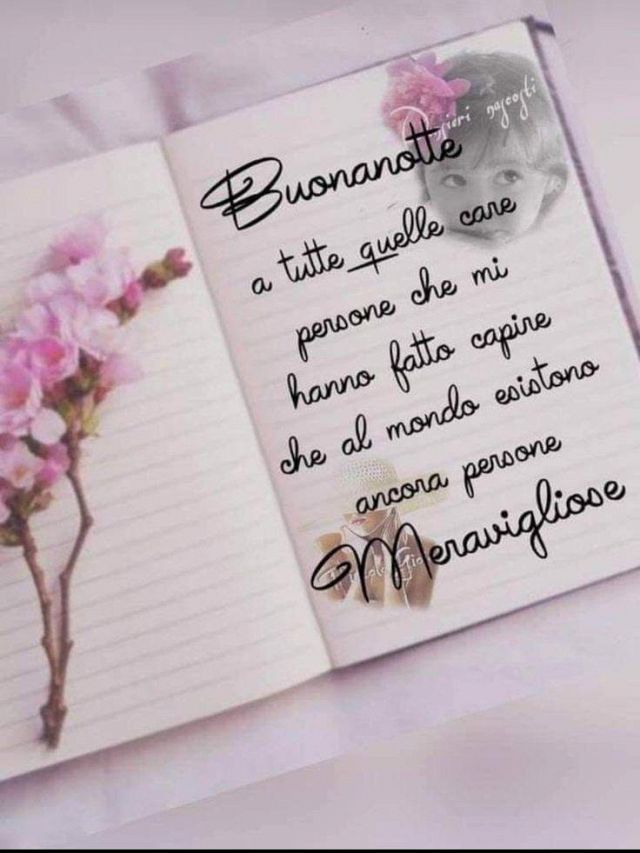 Pensieri nascosti
Buonanotte
a tutte quelle care
persone che mi
hanno fatto capire
che al mondo esistono
ancora persone
Meravigliose